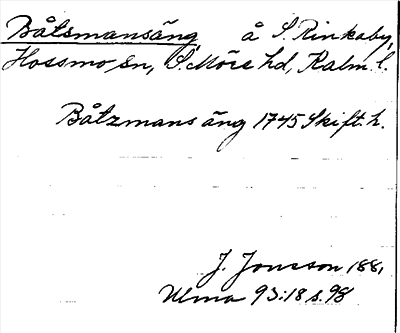 Båtsmansäng å S. Rinkaby,
Hossmo sn, S. Möre hd, Kalm. l.
Båtzmans äng 1745 Skift. h.
J. Jonsson 1881
Ulma 93:18 s. 98